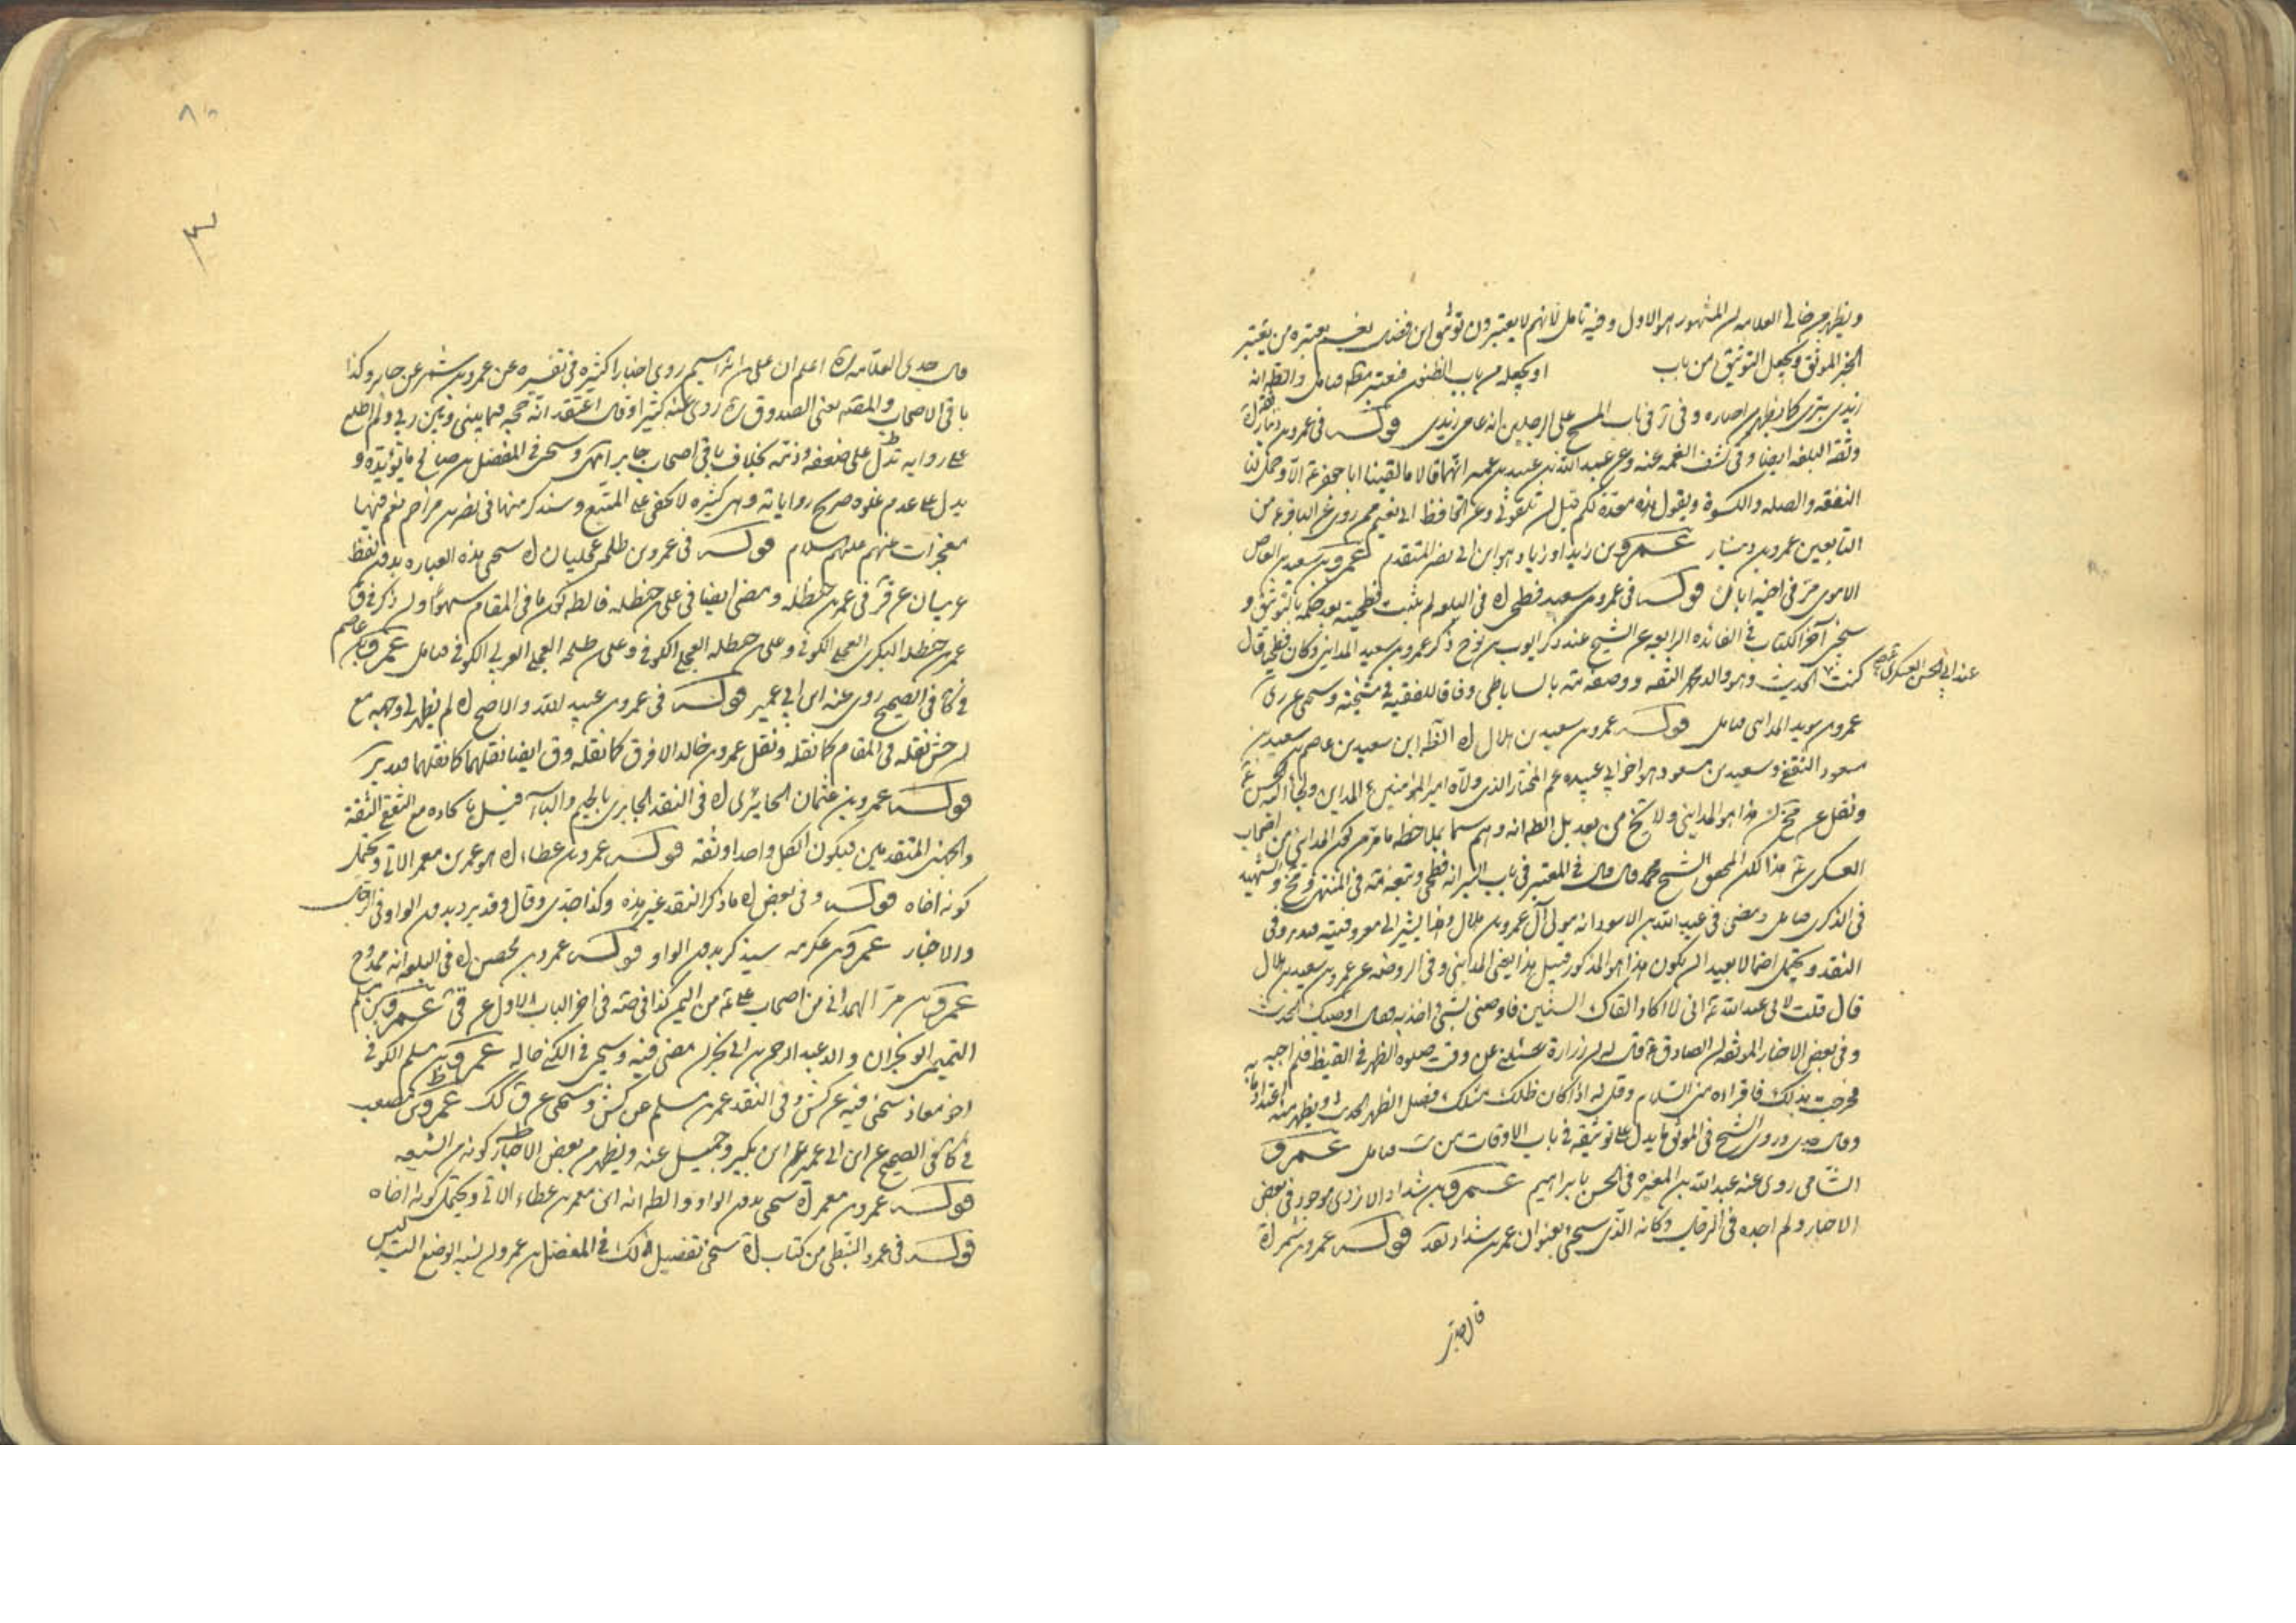 ويظهر من خالي العلامه ان المشهور هو الاول وفيه تامل لانهم لا يعتبرون توثيق ابن فضال نعم يعتبره من يعتبر
الخبر الموثق ويجعل التوثيق من باب او يجعله من باب الظنون فتعتبر مطلقا فتامل والظ انه
زيدي بتري كما يظهر من اخباره وفي في باب المسح على الرجلين انه عامي زيدي قوله في عمرو بن دينار
وثقه البلغه ايضا وفي كشف الغمه عنه وعن عبيد الله بن عبيد بن عمير انهما قالا ما لقينا ابا جعفر ع الا وحمل لنا
النفقه والصله والكسوة ويقول هذه معدة لكم قبل ان تلقوني وعن الحافظ ابي نعيم ممن روى عن الباقر ع من
التابعين عمرو بن دينار عمرو بن زايد او زياد هو ابن ابي نصر المتقدم عمرو بن سعيد بن العاص
الاموي مر في اخيه ابان قوله في عمرو بن سعيد فطحي اه في البلغه لم يثبت فطحيته بعد حكمه بالتوثيق و
سيجئ آخر الكتاب في الفائدة الرابعه عن الشيخ عند ذكر ايوب بن نوح ذكر عمرو بن سعيد المدايني وكان فطحيا قال
كنت عند ابي الحسن العسكري ع الحديث وهو والد محمد الثقه ووصفه بالساباطي وفاقا للفقيه في مشيخته وسيجئ عن ري
عمرو بن سويد المدايني فتامل قوله عمرو بن سعيد بن هلال اه الظ ابن سعيد بن عاصم بن سعيد بن
مسعود الثقفي وسعيد بن مسعود هو اخو ابي عبيده عم المختار الذي ولاه امير المؤمنين ع المداين ولجأ اليه الحسن ع
ونقل عن مخ ان هذا هو المدايني ولا يخ من بعد بل الظ انه وهم سيما بملاحظه ما مر من كون المدايني من اصحاب
العسكري ع هذا لكن المحقق الشيخ محمد قال قال في المعتبر في باب البئر انه فطحي وتبعه في المنتهى ومخ والشهيد
في الذكرى فتامل ومضى في عبد الله بن الاسود انه مولى آل عمرو بن هلال وهذا يشير الى معروفيته فتدبر وفي
النقد ويحتمل احتمالا بعيدا ان يكون هذا هو المذكور قبيل هذا يعني المدايني وفي الروضه عن عمرو بن سعيد بن هلال
قال قلت لابي عبد الله ع اني لا اكاد القاك الا السنين فاوصني بشئ اخذ به فقال اوصيك الحديث
وفي بعض الاخبار الموثقه ان الصادق ع قال له ان زرارة سئلني عن وقت صلوه الظهر في القيظ فلم اجبه
فخرجت بذلك فاقراه مني السلام وقل له اذا كان ظلك مثلك فصل الظهر الحديث ويظهر منه اعتداد ما به
وقال جدي وروى الشيخ في الموثق ما يدل على توثيقه في باب الاوقات من فتامل عمرو
الشامي روى عنه عبد الله بن المغيره في الحسن بابراهيم عمرو بن شداد الازدي موجود في بعض
الاخبار ولم اجده في الرجال وكانه الذي سيجئ بعنوان عمر بن شداد قوله عمرو بن شمر اه
قال جدي
قال جدي العلامه ره اعلم ان علي بن ابراهيم روى اخبارا كثيره في تفسيره عن عمرو بن شمر عن جابر وكذا
باقي الاصحاب والمصنف يعني الصدوق ره روى عنه كثيرا وقال اعتقد انه حجه فيما بيني وبين ربي ولم اطلع
على روايه تدل على ضعفه وذمه بخلاف باقي اصحاب جابر انتهى وسيجئ في المفضل بن صالح ما يؤيده و
يدل على عدم غلوه صريح رواياته وهي كثيره لا تخفى على المتتبع وسنذكر منها في نصر بن مزاحم نعم فيها
معجزات منهم عليهم السلام قوله في عمرو بن طلحه عجليان اه سيجئ هذه العباره بدون لفظ
عربيان عن ق في عمر بن حنظله ومضى ايضا في علي بن حنظله فالظ كون ما في المقام سهوا وان ذكر في ق
عمر بن حنظله البكري العجلي الكوفي وعلي بن حنظله العجلي الكوفي وعلي بن طلحه العجلي العربي الكوفي فتامل عمرو بن عاصم
في كا في الصحيح روى عنه ابن ابي عمير قوله في عمرو بن عبيد الله والاصح اه لم يظهر لي وجهه مع
ان نقله في المقام كما نقله ونقل عمرو بن خالد الافرق كما نقله وق ايضا نقلهما كما نقلهما فتدبر
قوله عمرو بن عثمان الجابري اه في النقد الجابري بالجيم والباء قبيل باكاده مع الثقفي الثقة
والجهني المتقدمين فيكون الكل واحدا وثقه قوله عمرو بن عطاء اه هو عمر بن معمر الاتي ويحتمل
كونه اخاه قوله وفي بعض اه ما ذكر النقد غير هذه وكذا جدي وقال وقد يرد بدون الواو في الرجال
والاخبار عمرو بن عكرمه سيذكر بدون الواو قوله عمرو بن محصن اه في البلغه انه ممدوح
عمرو بن مر الهمداني من اصحاب علي ع من اليمن كذا في صه في اخر الباب الاول عن قي عمرو بن مسلم
التميمي ابو نجران والد عبد الرحمن بن ابي نجران مضى فيه وسيجئ في الكنى حاله عمرو بن مسلم الكوفي
اخو معاذ سيجئ فيه عن كش وفي النقد عمر بن مسلم عن كش وسيجئ عن ق كك عمرو بن مصعب
في كا في الصحيح عن ابن ابي عمير عن ابن بكير وجميل عنه ويظهر من بعض الاخبار كونه من الشيعه
قوله عمرو بن معمر اه سيجئ بدون الواو والظ انه ابن معمر بن عطاء الاتي ويحتمل كونه اخاه
قوله في عمرو النبطي من كتاب اه سيجئ تفصيل ذلك في المفضل بن عمر وان نسبه الوضع اليه ليس